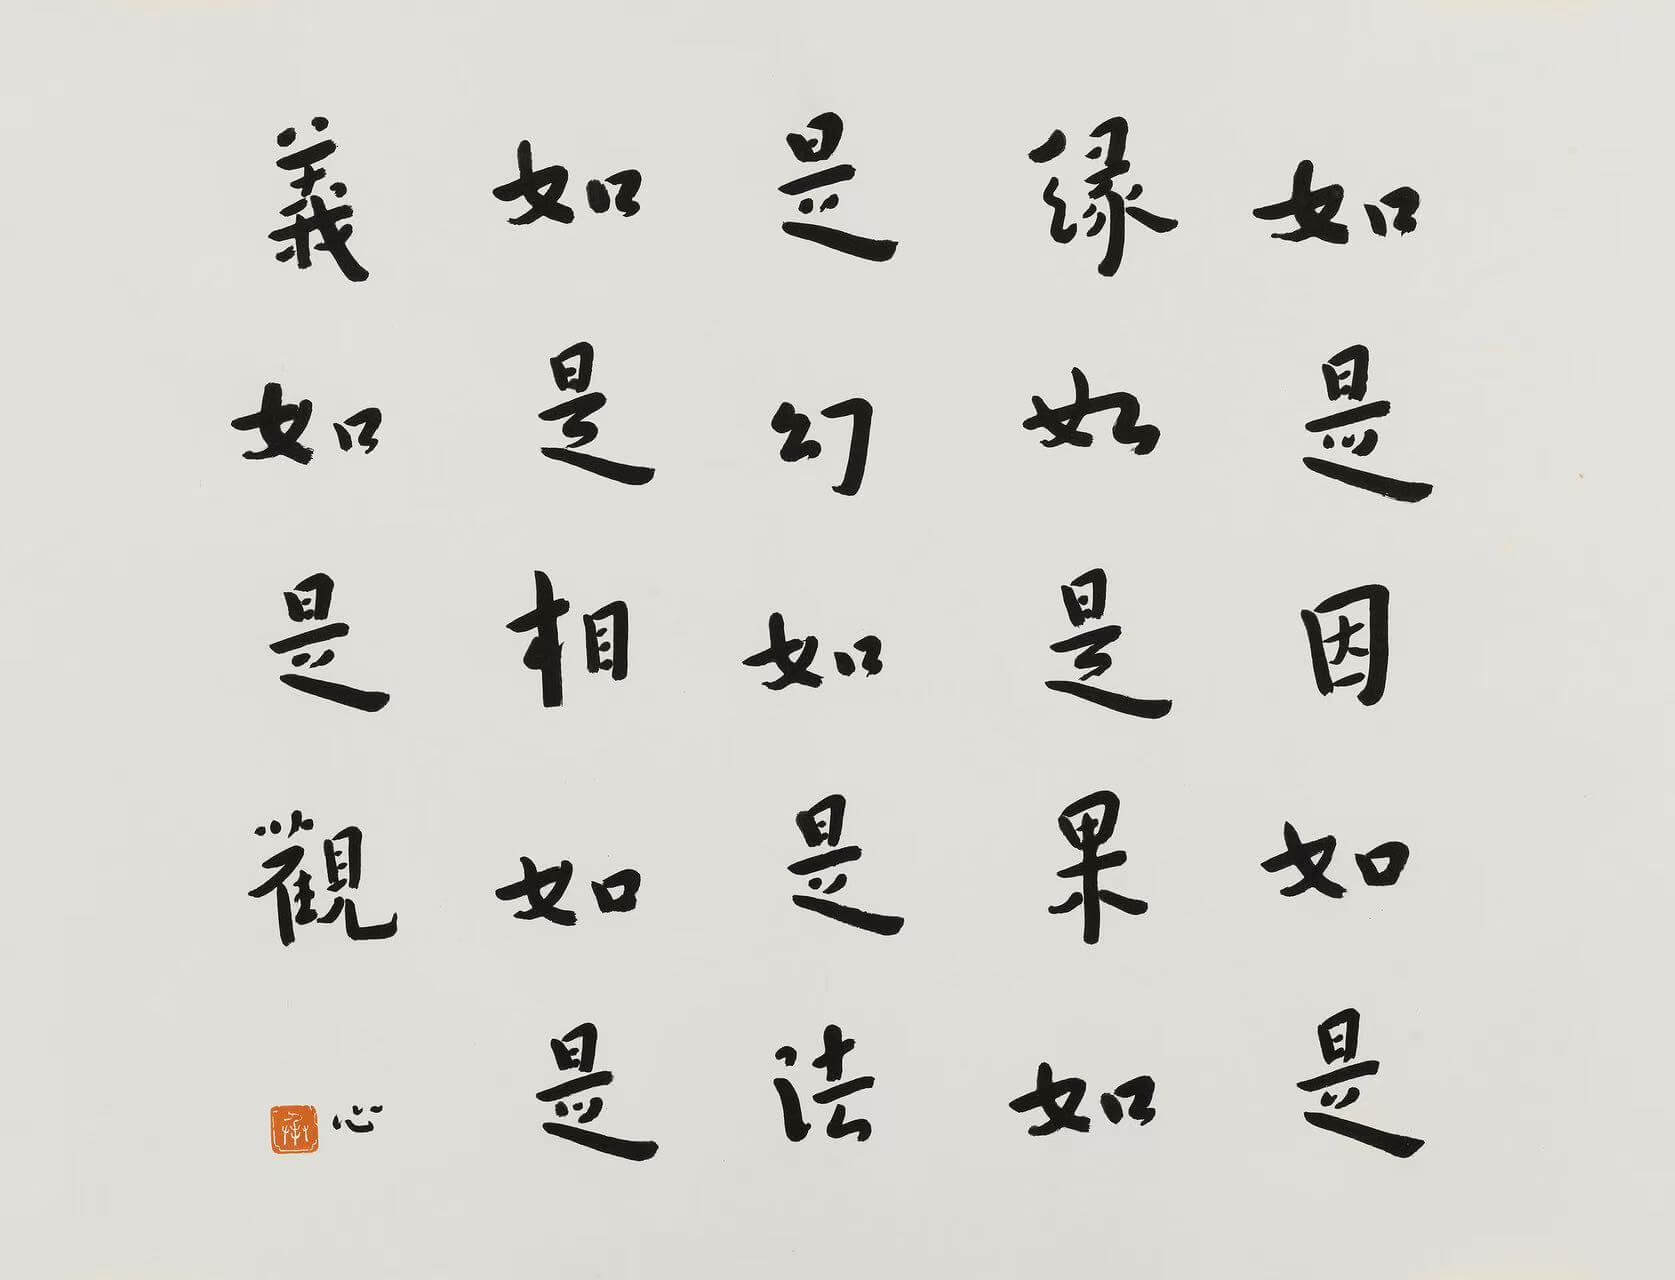 如是因如是
緣如是果如
是幻如是法
如是相如是
義如是觀
心